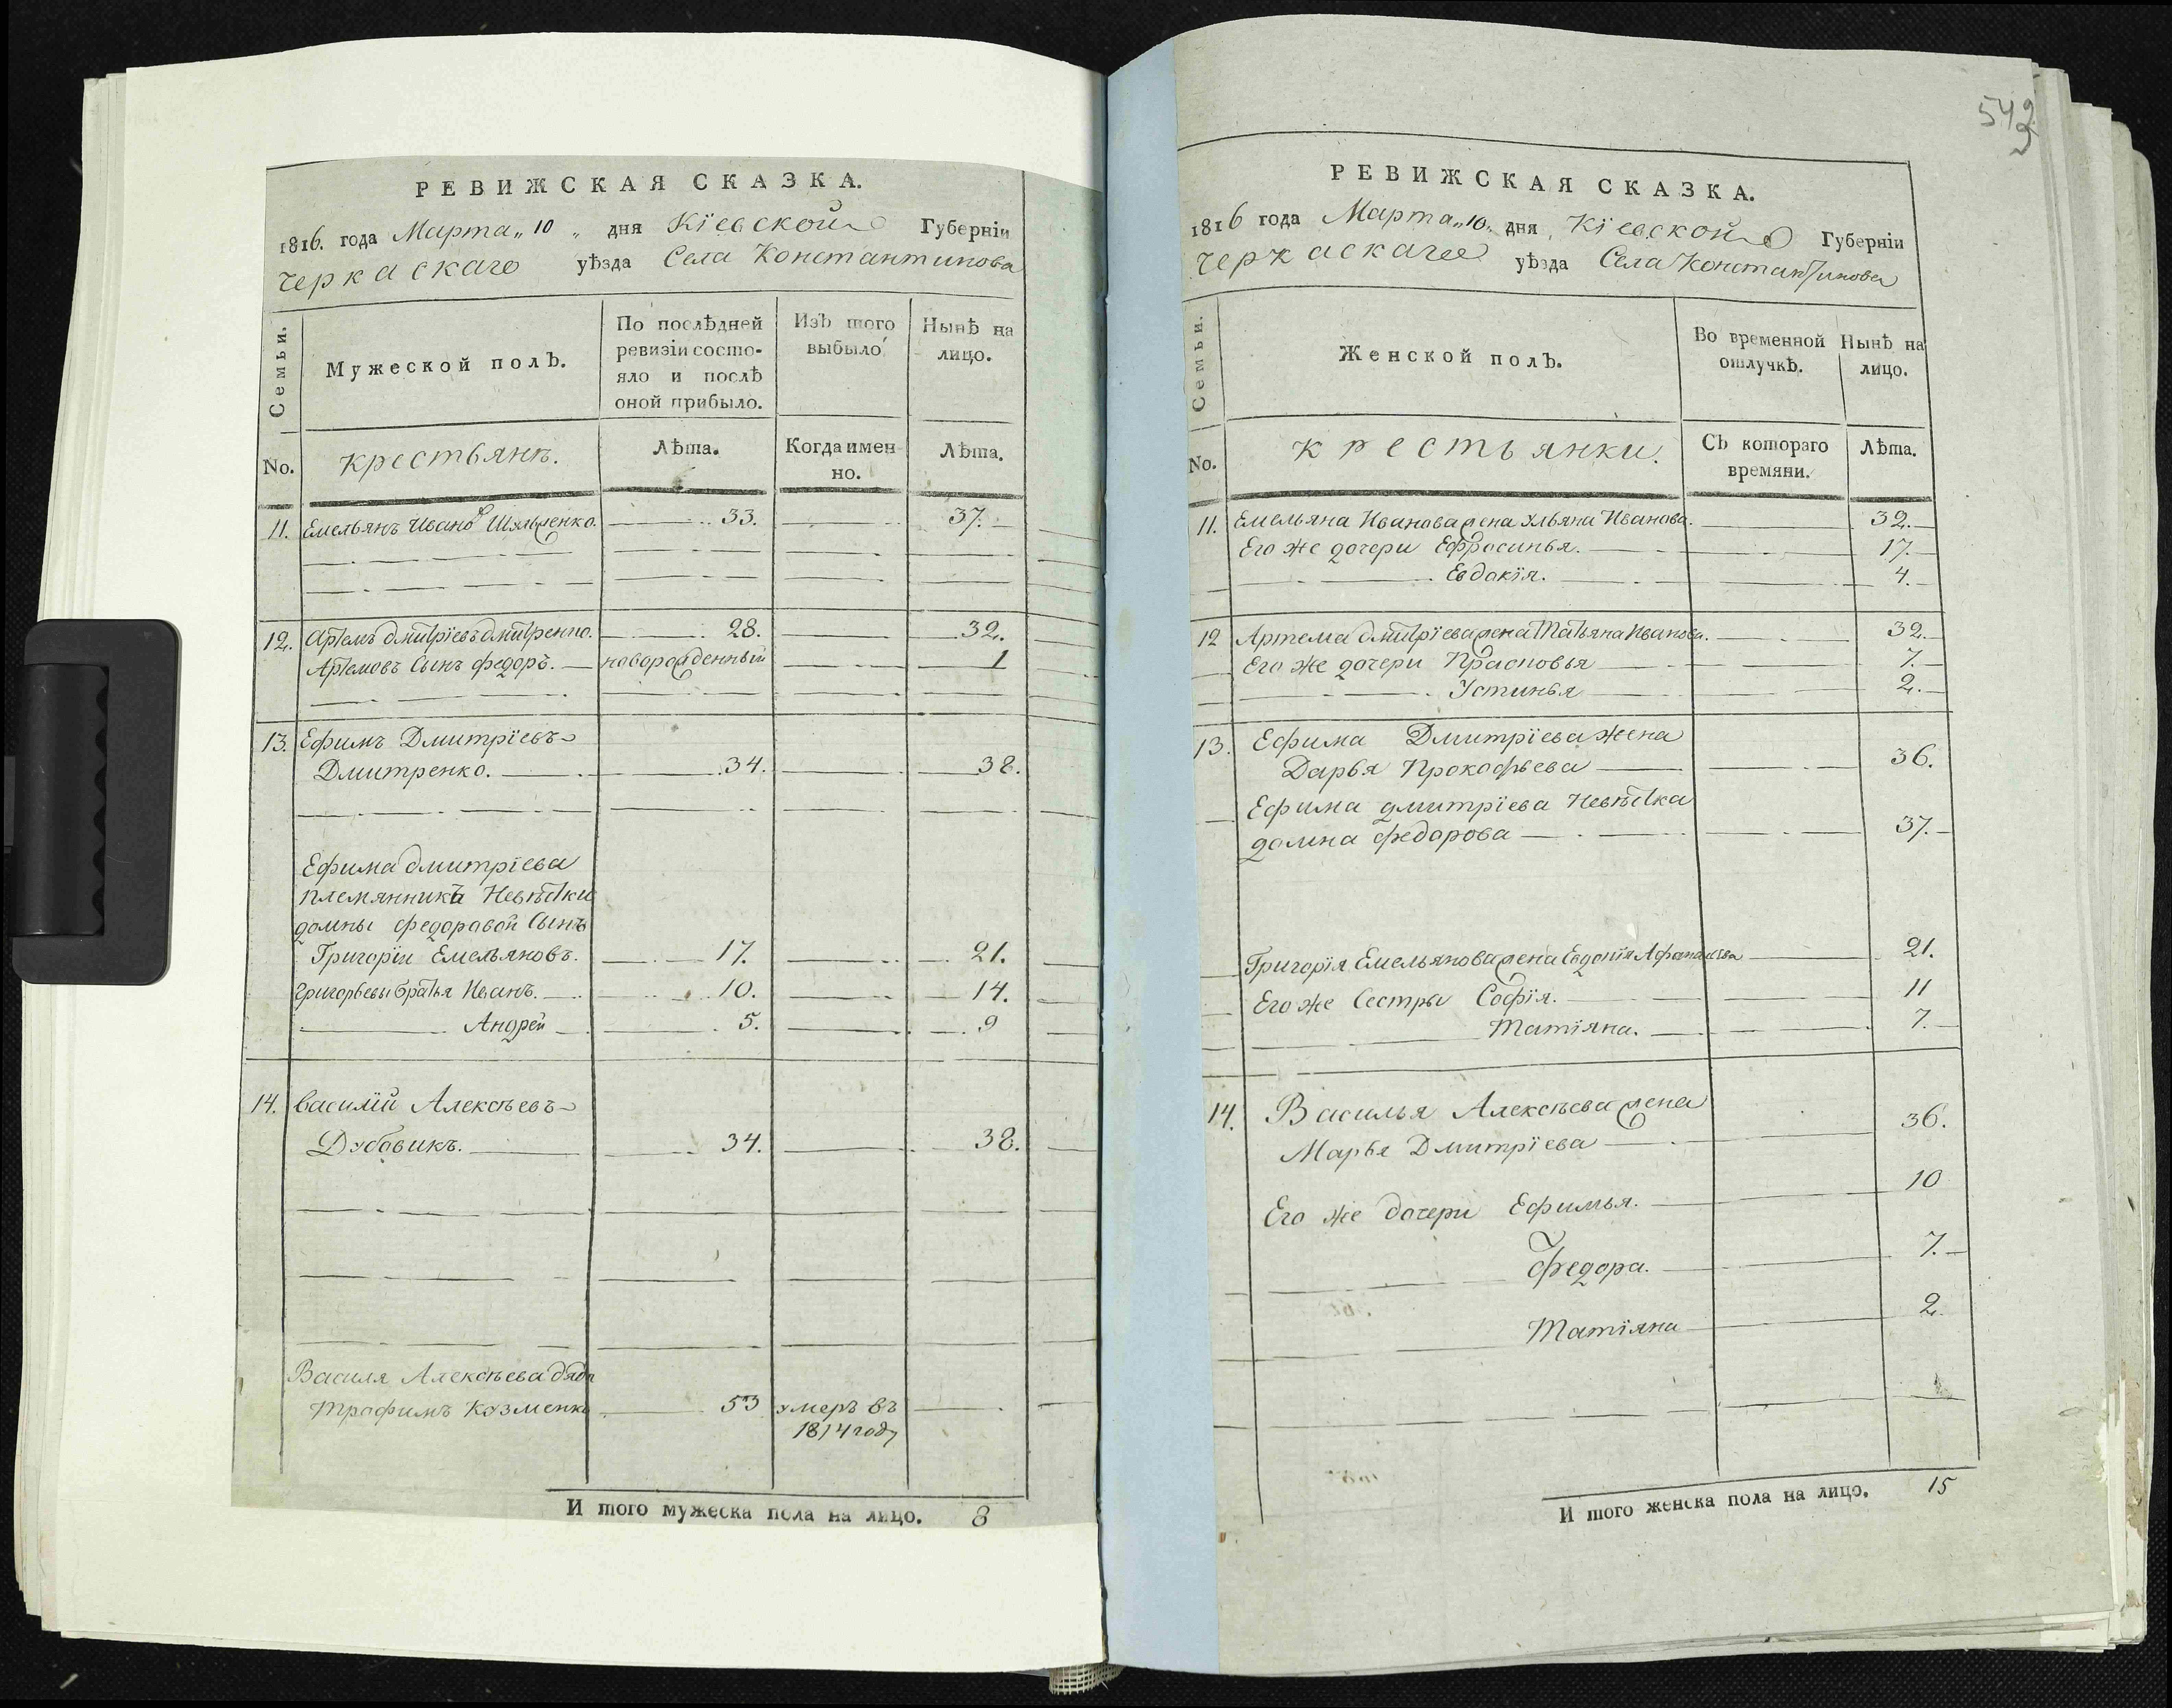 РЕВИЖСКАЯ СКАЗКА.
1816. года Марта „ 10 „ дня Кіевской Губерніи
Черкаскаго уѣзда Села Константинова
Семьи.
Мужеской полъ.
По послѣдней
ревизіи состо-
яло и послѣ
оной прибыло.
Изъ того
выбыло
Нынѣ на
лицо.
No.
крестьянъ.
Лѣта.
Когда имен-
но.
Лѣта.
11. Емельянъ Ивановъ 33. 37.
12. Артемъ дмитріевъ дмитренко. 28. 32.
Артемовъ Сынъ федоръ. новорожденный 1
13. Ефимъ Дмитріевъ
Дмитренко. 34. 38.
Ефима дмитріева
племянника Невѣстки
домны федоравой Сынъ
Григоріи Емельяновъ. 17. 21.
Григорьевы братья Иванъ. 10. 14.
Андрей 5. 9
14. василій Алексѣевъ
Дубовикъ. 34. 38.
Василя Алексѣева дядя
Трофимъ Козменко 53 умеръ въ
1814 году
И того мужеска пола на лицо. 8
542
3
РЕВИЖСКАЯ СКАЗКА.
1816 года Марта „ 10 „ дня Кіевской Губерніи
Черкаскаго уѣзда Села Константинова
Семьи.
Женской полъ.
Во временной
отлучкѣ.
Нынѣ на
лицо.
No.
крестьянки.
Съ котораго
времяни.
Лѣта.
11. Емельяна Иванова жена Ульяна Иванова. 32.
Его же дочери Ефросинья. 17.
Евдокія. 4.
12 Артема дмитріева жена Татьяна Иванова. 32.
Его же дочери Прасковья 7.
Устинья 2.
13. Ефима Дмитріева жена
Дарья Прокофьева 36.
Ефима дмитріева Невѣстка
домна федорова 37.
Григорія Емельянова жена Евдокія Афанасьева 21.
Его же Сестры Софія. 11
Матіяна. 7.
14. Василья Алексѣева жена
Марья Дмитріева 36.
Его же дочери Ефимья. 10
федора. 7.
Матіяна 2.
И того женска пола на лицо. 15